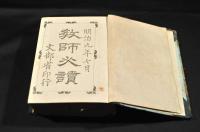 明治九年七月
教師必讀
文部省印行